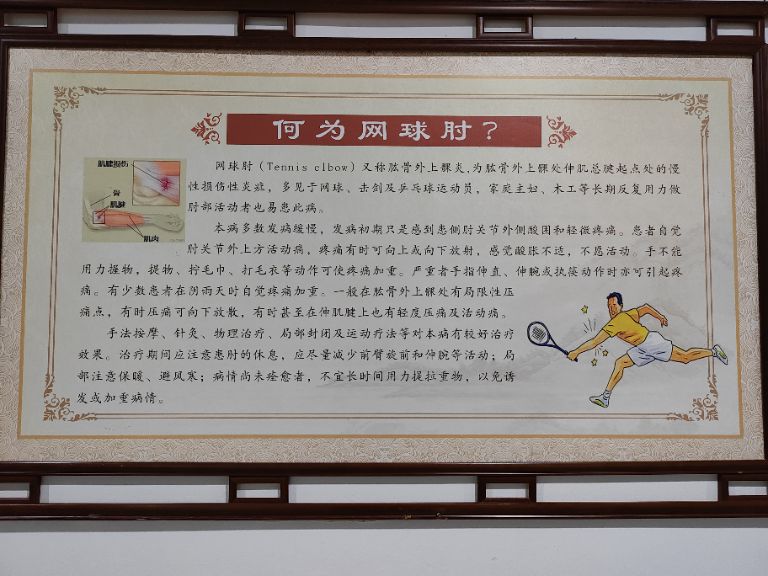 何为网球肘？
肌腱损伤
骨
肌腱
肌肉
网球肘（Tennis clbow）又称肱骨外上髁炎,为肱骨外上髁处伸肌总腱起点处的慢
性损伤性炎症，多见于网球、击剑及乒乓球运动员，家庭主妇、木工等长期反复用力做
肘部活动者也易患此病。
本病多数发病缓慢，发病初期只是感到患侧肘关节外侧酸困和轻微疼痛。患者自觉
肘关节外上方活动痛，疼痛有时可向上或向下放射，感觉酸胀不适，不愿活动。手不能
用力握物，提物、拧毛巾、打毛衣等动作可使疼痛加重。严重者手指伸直、伸腕或执筷动作时亦可引起疼
痛。有少数患者在阴雨天时自觉疼痛加重。一般在肱骨外上髁处有局限性压
痛点，有时压痛可向下放散，有时甚至在伸肌腱上也有轻度压痛及活动痛。
手法按摩、针灸、物理治疗、局部封闭及运动疗法等对本病有较好治疗
效果。治疗期间应注意患肘的休息，应尽量减少前臂旋前和伸腕等活动；局
部注意保暖、避风寒；病情尚未痊愈者，不宜长时间用力提拉重物，以免诱
发或加重病情。